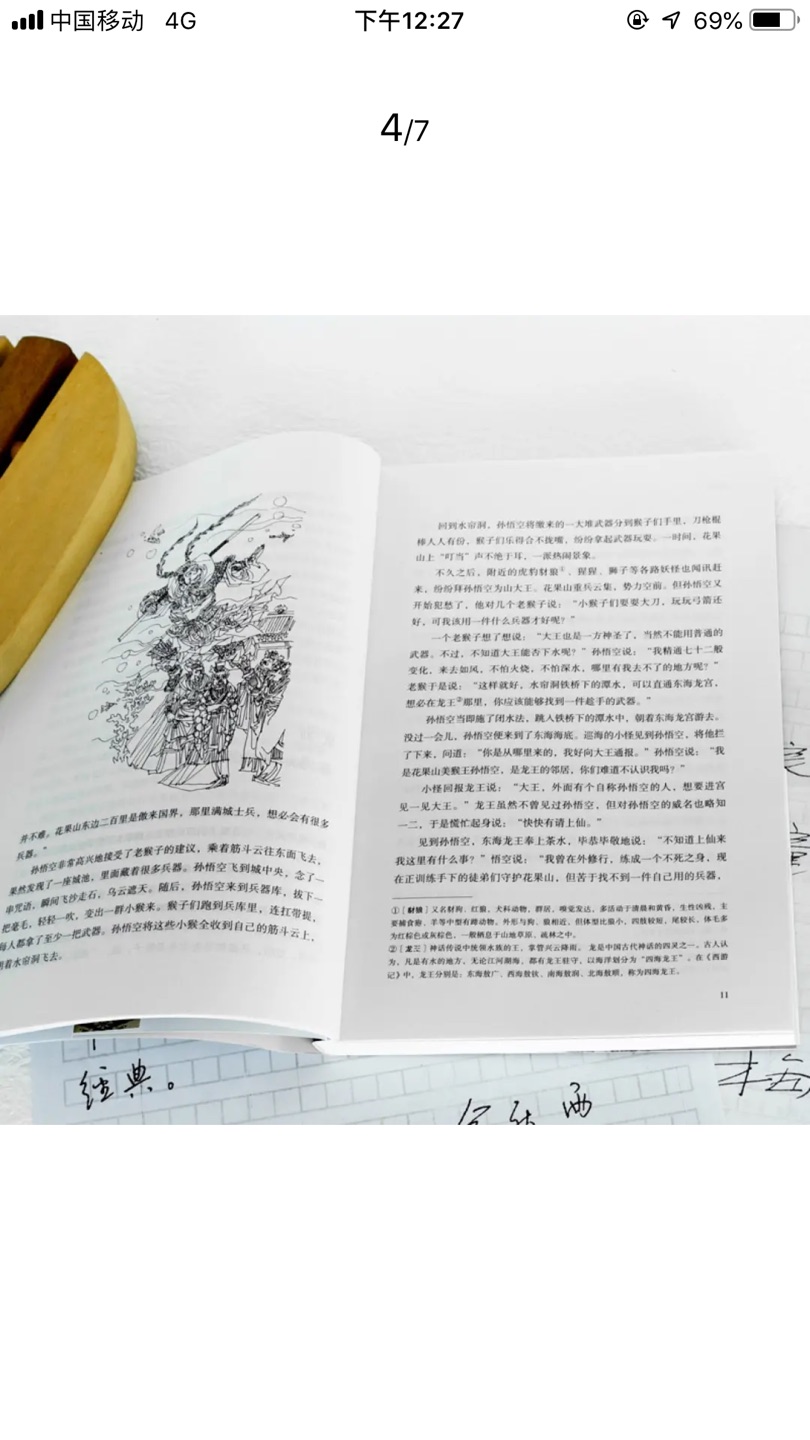 中国移动 4G 下午12:27 69%
4/7
并不难。花果山东边二百里是傲来国界，那里满城士兵，想必会有很多
兵器。”
孙悟空非常高兴地接受了老猴子的建议，乘着筋斗云往东面飞去，
果然发现了一座城池，里面藏着很多兵器。孙悟空飞到城中央，念了一
串咒语，瞬间飞沙走石，乌云遮天。随后，孙悟空来到兵器库，拔下一
把毫毛，轻轻一吹，变出一群小猴来。猴子们跑到兵库里，连扛带提，
每人都拿了至少一把武器。孙悟空将这些小猴全收到自己的筋斗云上，
朝着水帘洞飞去。
回到水帘洞，孙悟空将缴来的一大堆武器分到猴子们手里，刀枪棍
棒人人有份，猴子们乐得合不拢嘴，纷纷拿起武器玩耍。一时间，花果
山上“叮当”声不绝于耳，一派热闹景象。
不久之后，附近的虎豹豺狼①、猩猩、狮子等各路妖怪也闻讯赶
来，纷纷拜孙悟空为山大王。花果山重兵云集，势力空前。但孙悟空又
开始犯愁了，他对几个老猴子说：“小猴子们耍耍大刀，玩玩弓箭还
好，可我该用一件什么兵器才好呢？”
一个老猴子想了想说：“大王也是一方神圣了，当然不能用普通的
武器。不过，不知道大王能否下水呢？”孙悟空说：“我精通七十二般
变化，来去如风，不怕火烧，不怕深水，哪里有我去不了的地方呢？”
老猴于是说：“这样就好，水帘洞铁桥下的潭水，可以直通东海龙宫，
想必在龙王②那里，你应该能够找到一件趁手的武器。”
孙悟空当即施了闭水法，跳入铁桥下的潭水中，朝着东海龙宫游去。
没过一会儿，孙悟空便来到了东海海底。巡海的小怪见到孙悟空，将他拦
了下来，问道：“你是从哪里来的，我好向大王通报。”孙悟空说：“我
是花果山美猴王孙悟空，是龙王的邻居，你们难道不认识我吗？”
小怪回报龙王说：“大王，外面有个自称孙悟空的人，想要进宫
见一见大王。”龙王虽然不曾见过孙悟空，但对孙悟空的威名也略知
一二，于是慌忙起身说：“快快有请上仙。”
见到孙悟空，东海龙王奉上茶水，毕恭毕敬地说：“不知道上仙来
我这里有什么事？”悟空说：“我曾在外修行，练成一个不死之身，现
在正训练手下的徒弟们守护花果山，但苦于找不到一件自己用的兵器，
①［豺狼］又名豺狗、红狼，犬科动物，群居，嗅觉发达，多活动于清晨和黄昏，生性凶残，主
要捕食狍、羊等中型有蹄动物。外形与狗、狼相近，但体型比狼小，四肢较短，尾较长，体毛多
为红棕色或灰棕色，一般栖息于山地草原、疏林之中。
②［龙王］神话传说中统领水族的王，掌管兴云降雨。龙是中国古代神话的四灵之一，古人认
为，凡是有水的地方，无论江河湖海，都有龙王驻守，以海洋划分为“四海龙王”。在《西游
记》中，龙王分别是：东海敖广、西海敖钦、南海敖润、北海敖顺，称为四海龙王。
11
经典。
梅